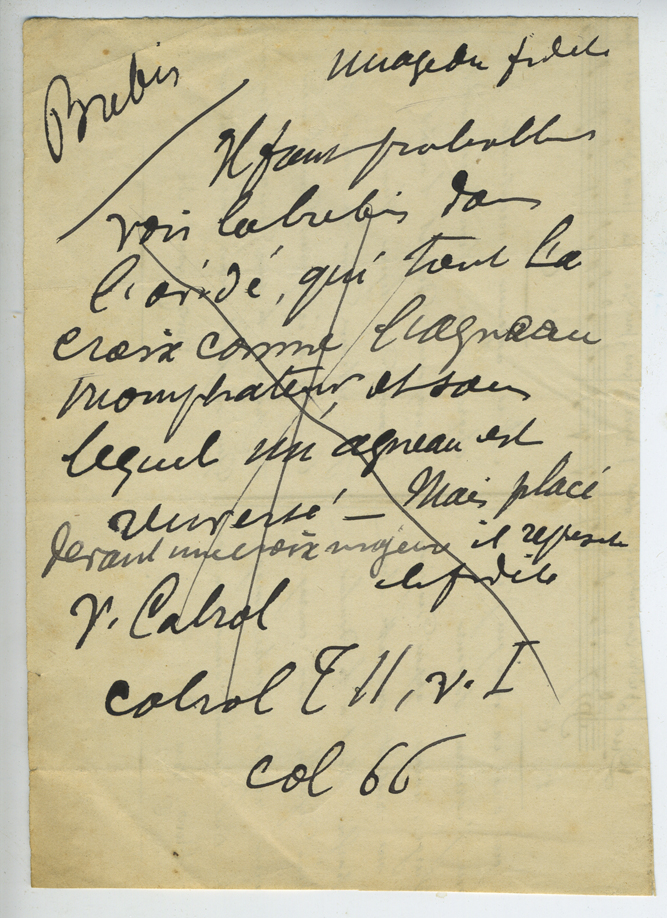 Brebis
image du fidele
Il faut probablem
voir la brebis dans
qui tient la
croix comme l'agneau
triomphateur, et sous
lequel un agneau est
renversé — Mais placé
devant une croix il represente
le fidele
V. Cabrol
Cabrol T II, v. I
col 66